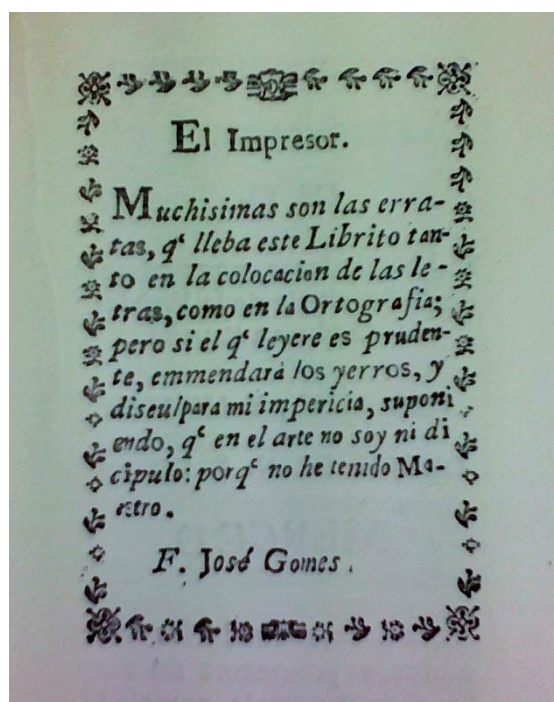 El Impresor.
Muchisimas son las erra-
tas, qᶜ lleba este Librito tan-
to en la colocacion de las le-
tras, como en la Ortografia;
pero si el qᶜ leyere es pruden-
te, emmendarà los yerros, y
diseulpara mi impericia, suponi
endo, qᶜ en el arte no soy ni di
cipulo: porqᶜ no he tenido Ma-
estro.
F. José Gomes.